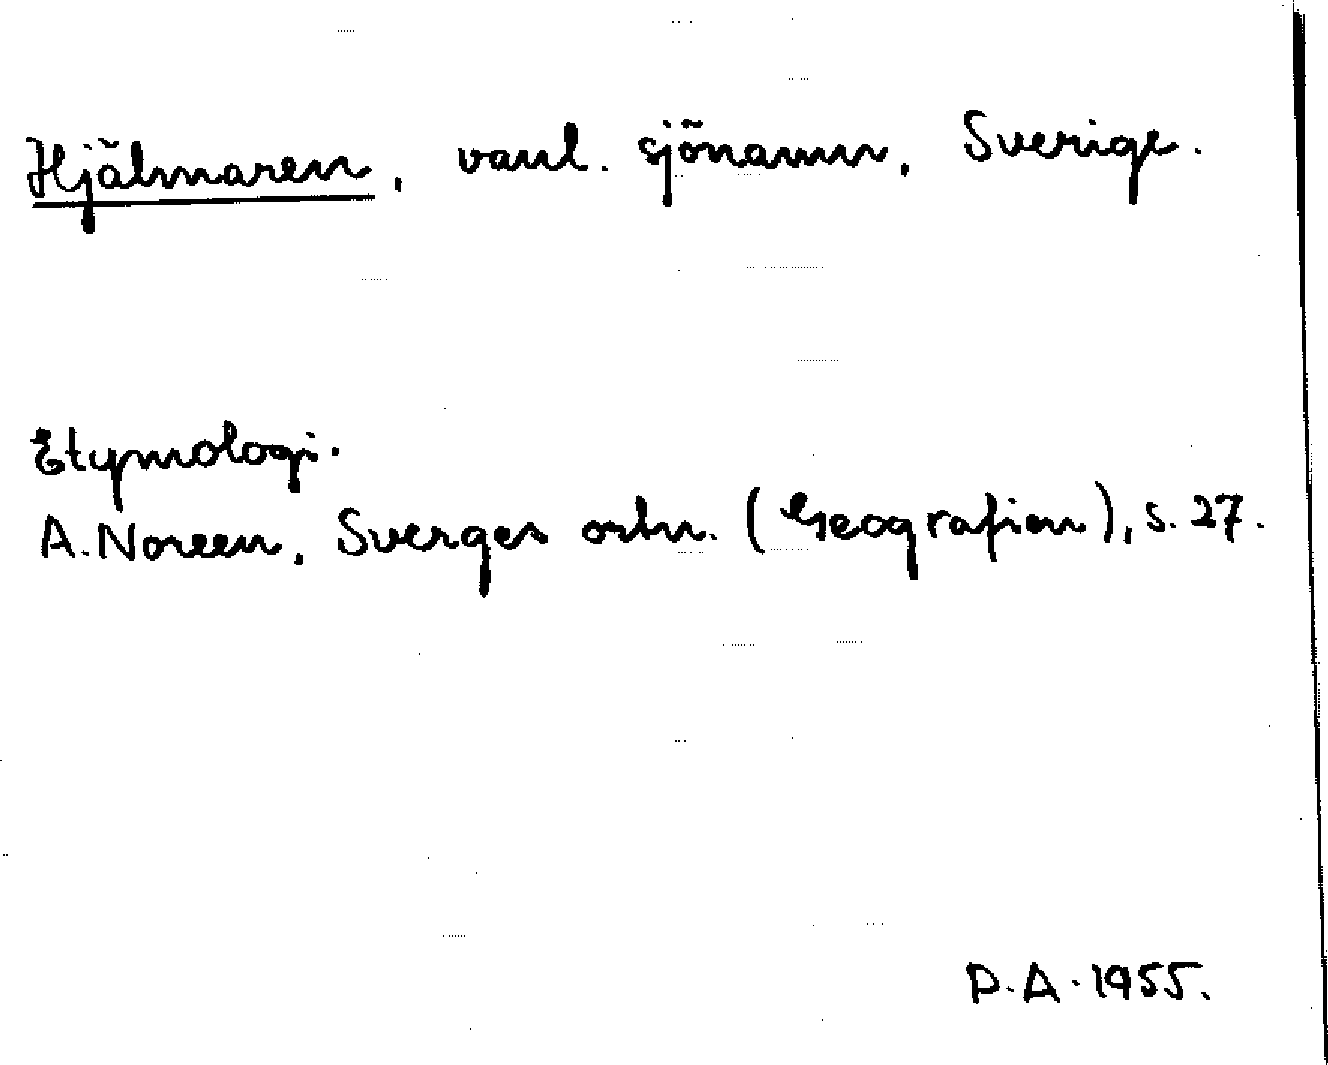 Hjälmaren, vanl. sjönamn, Sverige.
Etymologi.
A. Noreen, Sverges ortn. (Geografien), s. 27.
D. A. 1955.